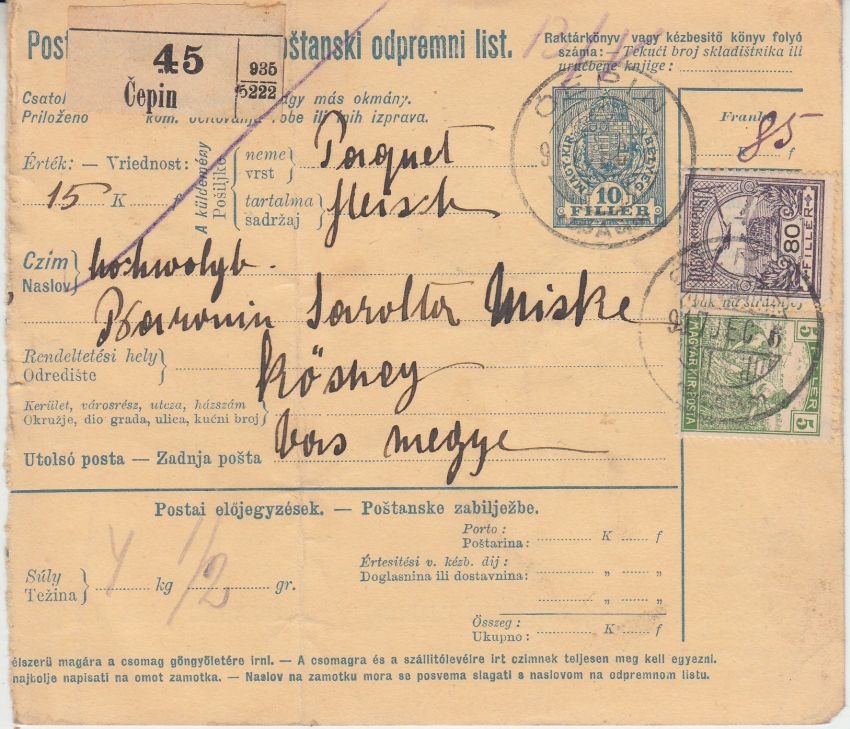 Post
oštanski odpremni list.
45
Čepin
935
5222
Raktárkönyv vagy kézbesitő könyv folyó
száma: — Tekući broj skladištnika ili
uručbene knjige:
Csatol
agy más okmány.
Priloženo
ili inih izprava.
Érték: — Vriednost:
15 K f
A küldemény
Pošiljke
neme
vrst
Paquet
tartalma
sadržaj
fleisch
ČEPIN
MAGY. KIR.
10
FILLÉR
Franko
85
f
80
FILLÉR
Czím
Naslov
hochwolgb.
Baronin Sarolta Miske
917 DEC
5
FILLER
5
MAGYAR KIR. POSTA
Rendeltetési hely
Odredište
Kőszeg
Kerület, városrész, utcza, házszám
Okružje, dio grada, ulica, kućni broj
Utolsó posta — Zadnja pošta
Vas megye
Postai előjegyzések. — Poštanske zabilježbe.
Porto:
Poštarina: K f
Értesitési v. kézb. dij:
Doglasnina ili dostavnina: „ „
„ „
Súly
Težina
4 kg 1/2 gr.
Összeg:
Ukupno: K f
élszerű magára a csomag göngyöletére irni. — A csomagra és a szállitólevélre irt czimnek teljesen meg kell egyezni.
najbolje napisati na omot zamotka. — Naslov na zamotku mora se posvema slagati s naslovom na odpremnom listu.